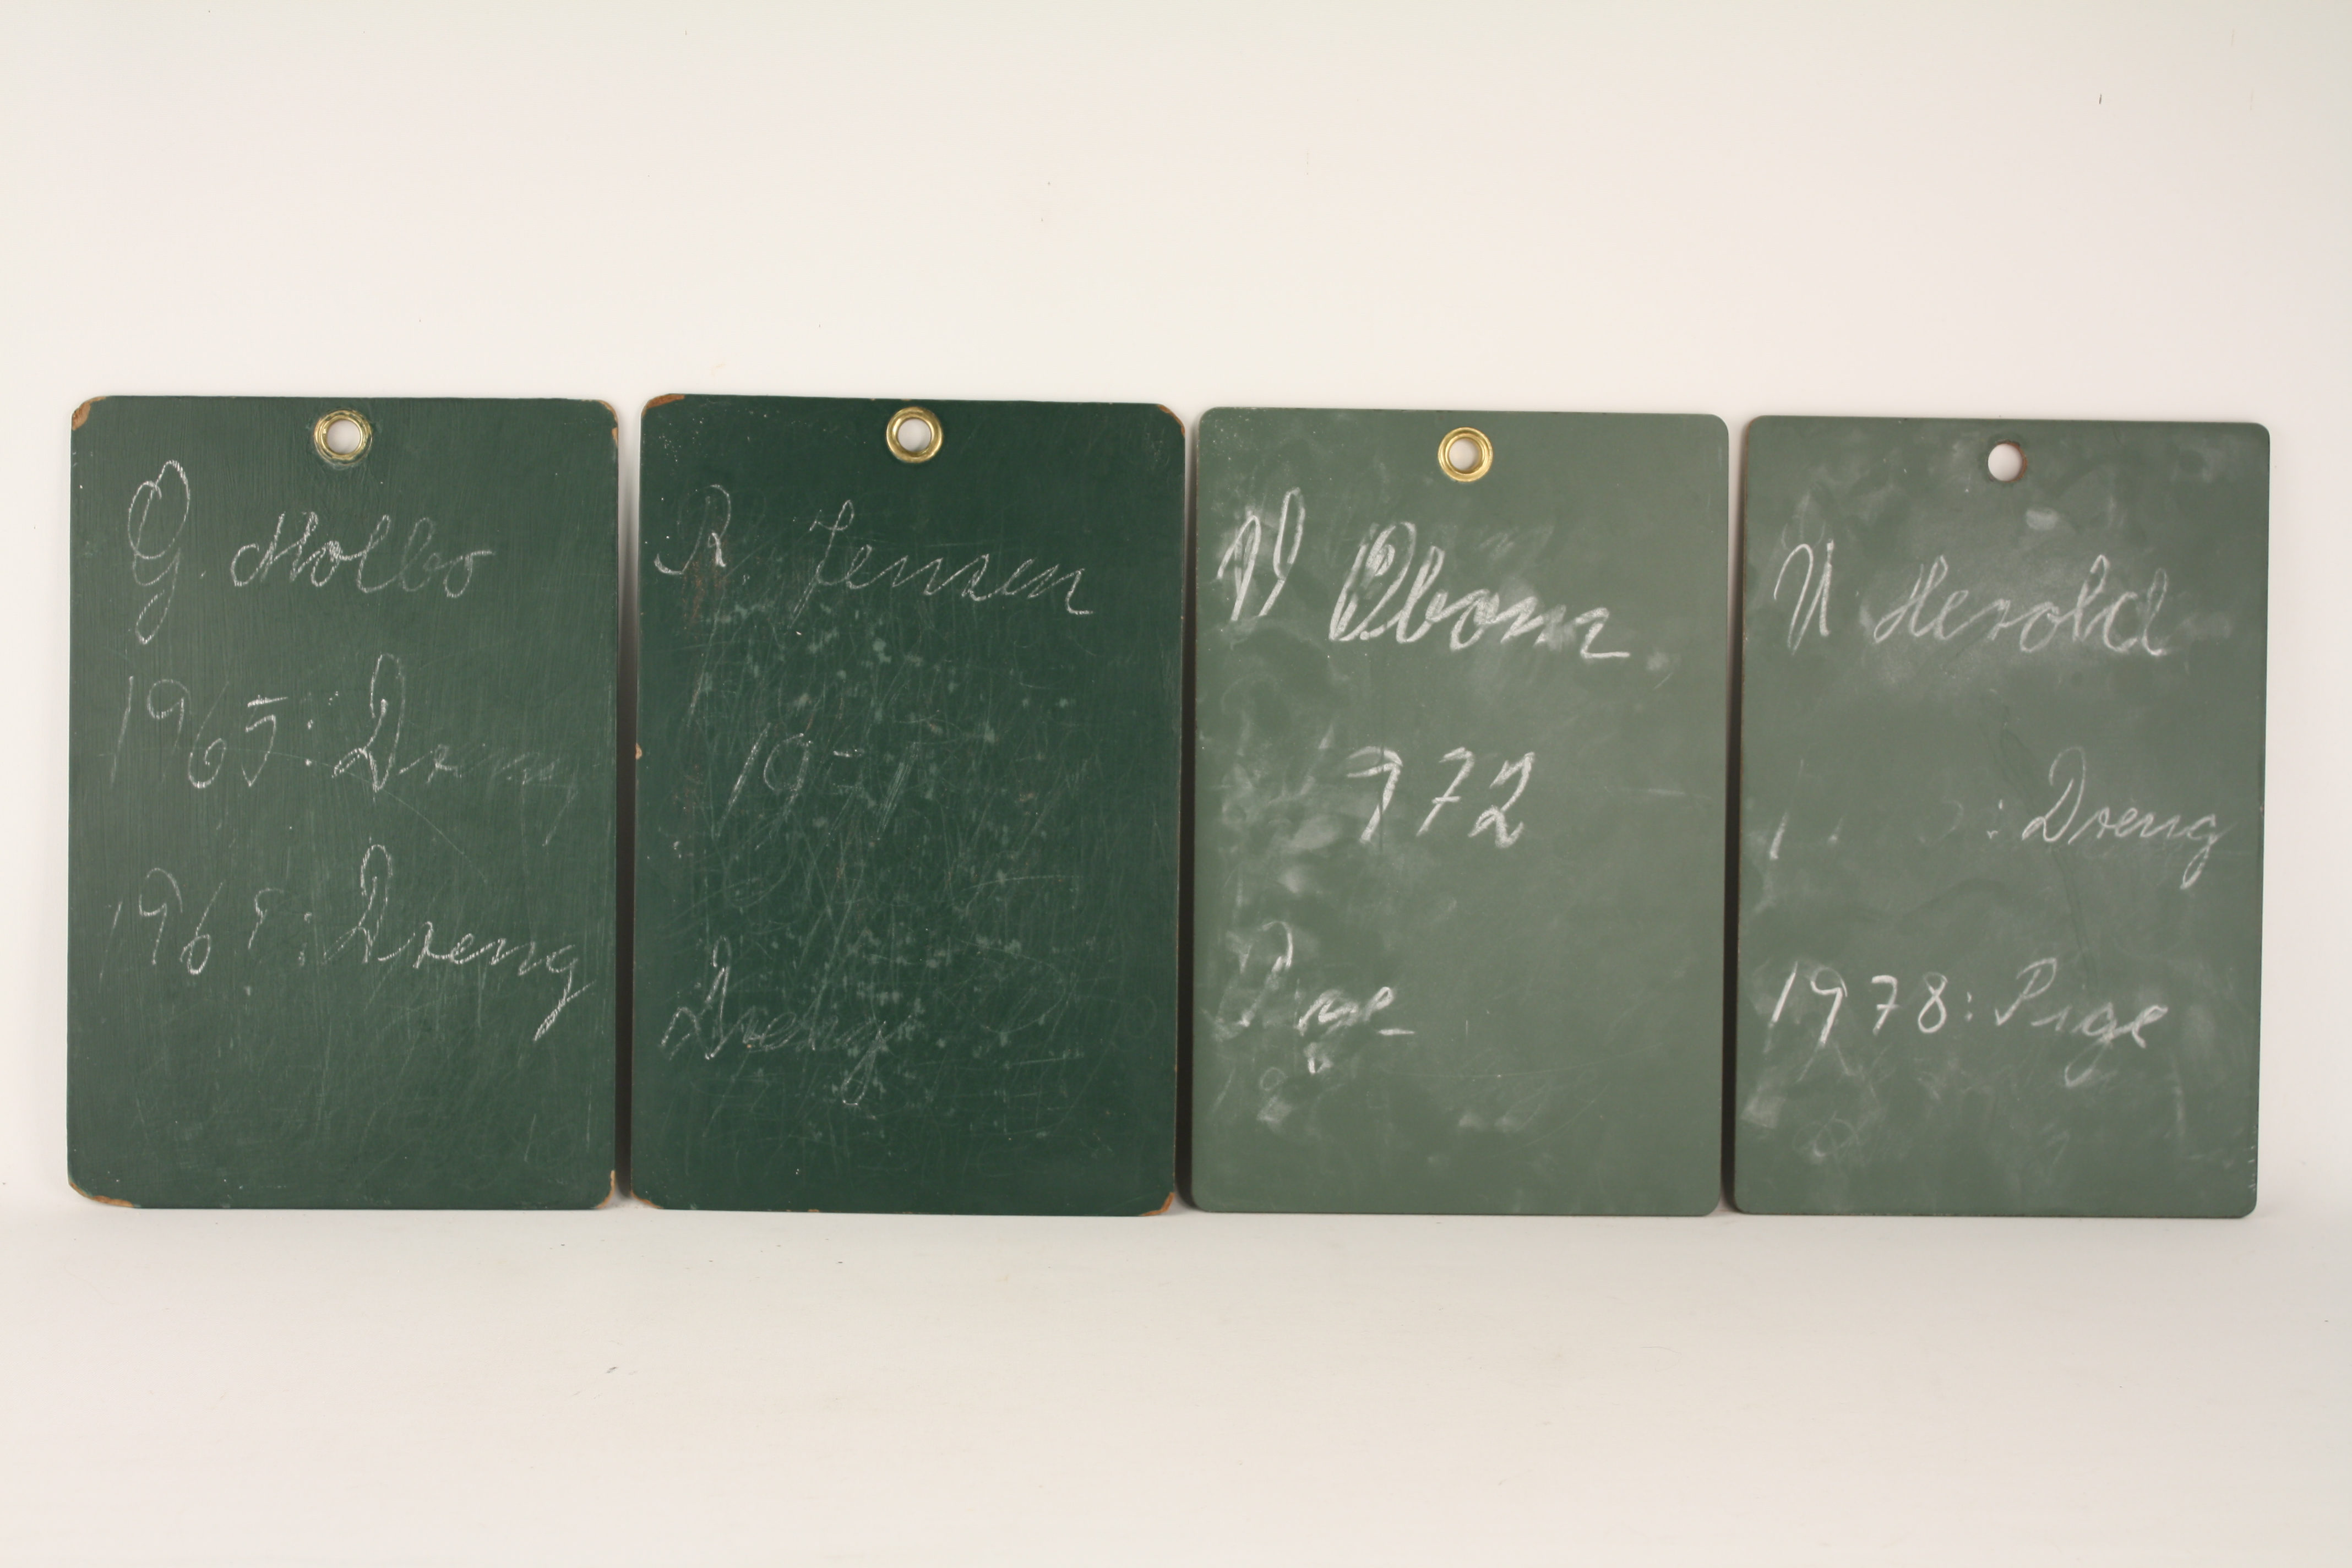 G. Holbo
1965: Dreng
196 : Dreng
R Jensen
19 
Dreng
Obom
972
Pige
N Herold
: Dreng
1978: Pige